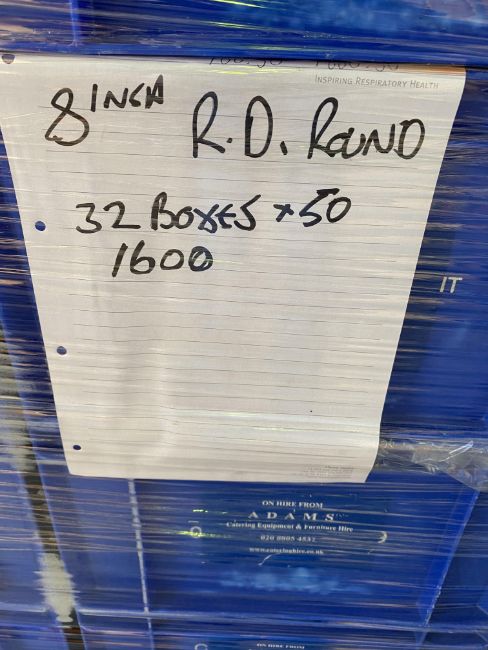 INSPIRING RESPIRATORY HEALTH
8 INCH R.D. ROUND
32 BOXES x 50
1600
IT
ON HIRE FROM
ADAMS
Catering Equipment & Furniture Hire
020 8805 4532
www.cateringhire.co.uk
ON HIRE FROM